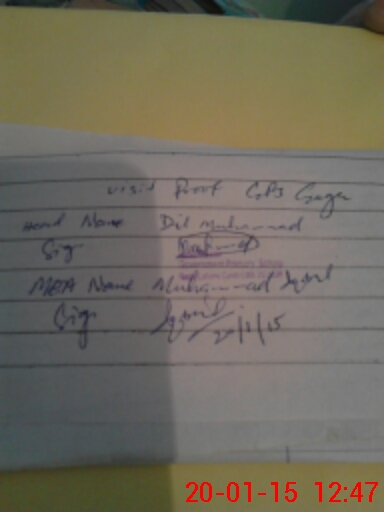 visit Proof GPS
Head Name Dil Muhammad
Sig
Government Primary School
MEA Name Muhammad Iqbal
Sig Iqbal
20/1/15
20-01-15 12:47